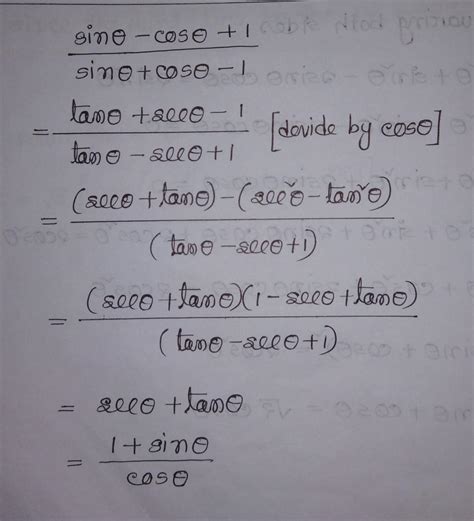 sinθ - cosθ + 1
sinθ + cosθ - 1
= tanθ + secθ - 1
tanθ - secθ + 1 [devide by cosθ]
= (secθ + tanθ) - (sec²θ - tan²θ)
(tanθ - secθ + 1)
= (secθ + tanθ)(1 - secθ + tanθ)
(tanθ - secθ + 1)
= secθ + tanθ
= 1 + sinθ
cosθ